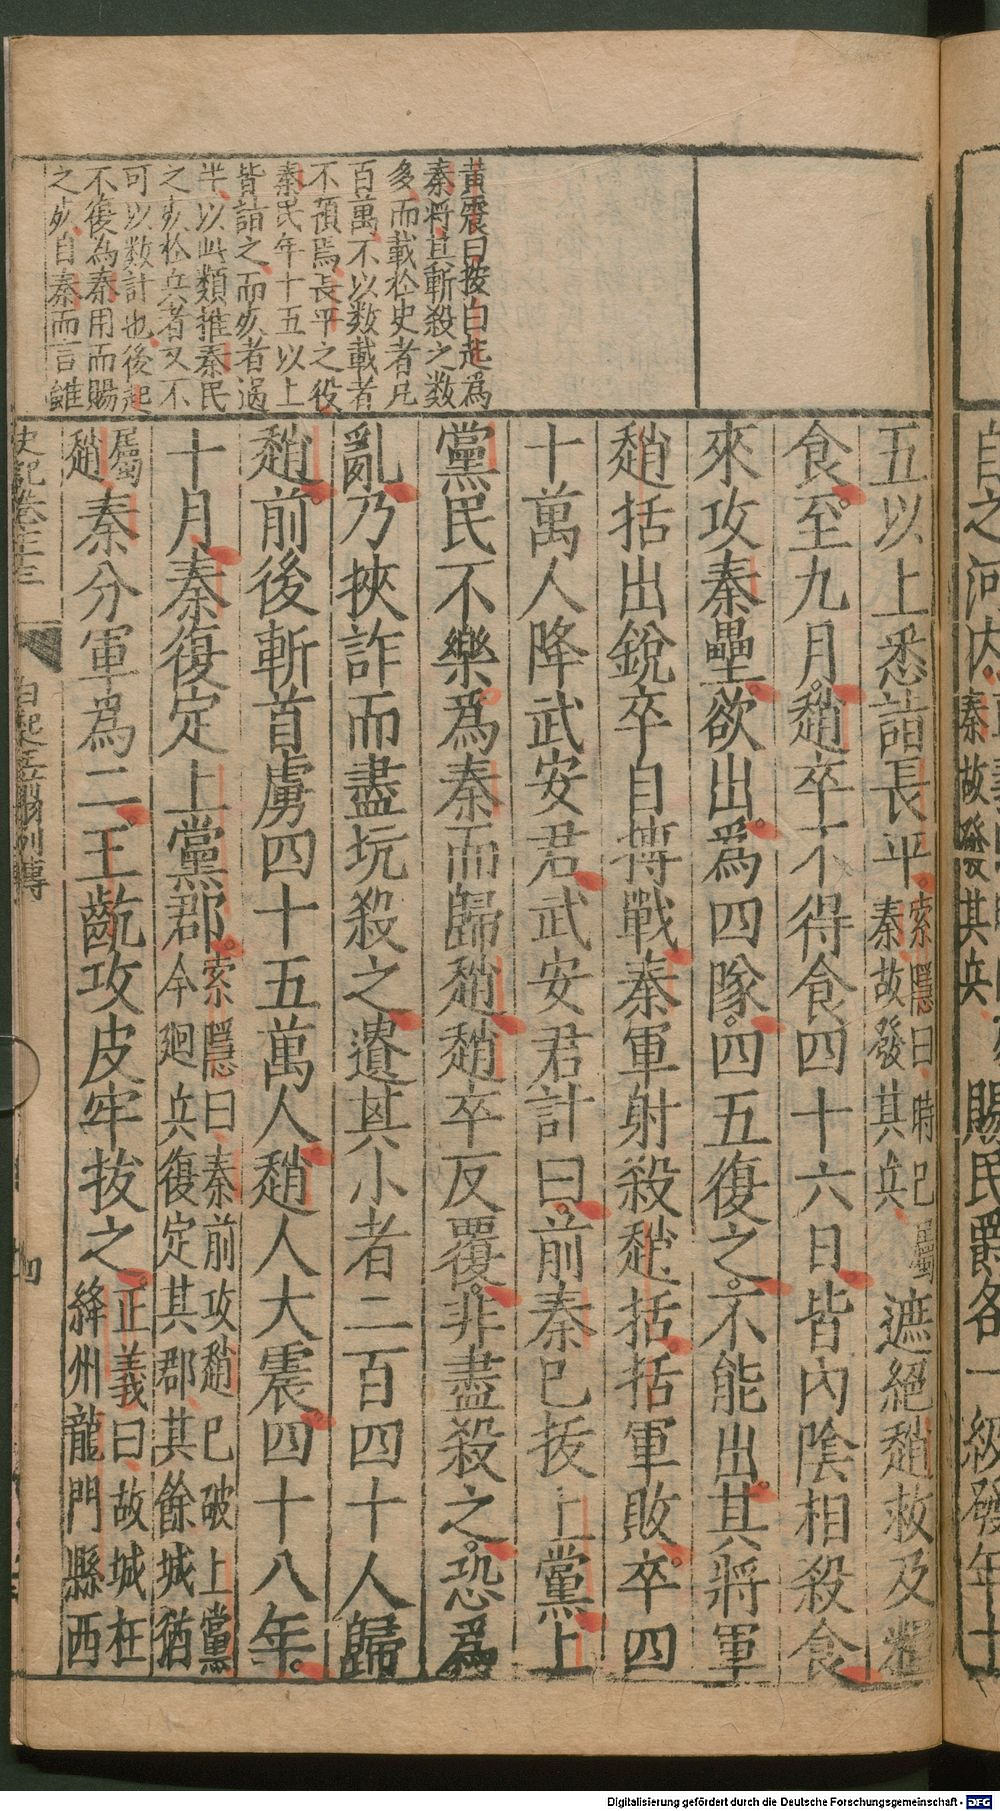 自之河内
秦故發其兵
賜民爵各一級發年十
黄震曰按白起為
秦將其斬殺之數
多而載於史者凡
百萬不以數載者
不預焉長平之役
秦民年十五以上
皆詣之而死者過
半以此類推秦民
之死於兵者又不
可以數計也後起
不復為秦用而賜
之死自秦而言雖
五以上悉詣長平
索隱曰時已屬
秦故發其兵
遮絕趙救及糧
食至九月趙卒不得食四十六日皆內陰相殺食
來攻秦壘欲出爲四隊四五復之不能出其將軍
趙括出銳卒自搏戰秦軍射殺趙括括軍敗卒四
十萬人降武安君武安君計曰前秦已拔上黨上
黨民不樂爲秦而歸趙趙卒反覆非盡殺之恐爲
亂乃挾詐而盡坑殺之遺其小者二百四十人歸
趙前後斬首虜四十五萬人趙人大震四十八年
十月秦復定上黨郡
索隱曰秦前攻趙已破上黨
今廻兵復定其郡其餘城猶
屬
趙
秦分軍爲二王齕攻皮牢拔之
正義曰故城在
絳州龍門縣西
史記卷七十三
白起王翦列傳
四
Digitalisierung gefördert durch die Deutsche Forschungsgemeinschaft - DFG